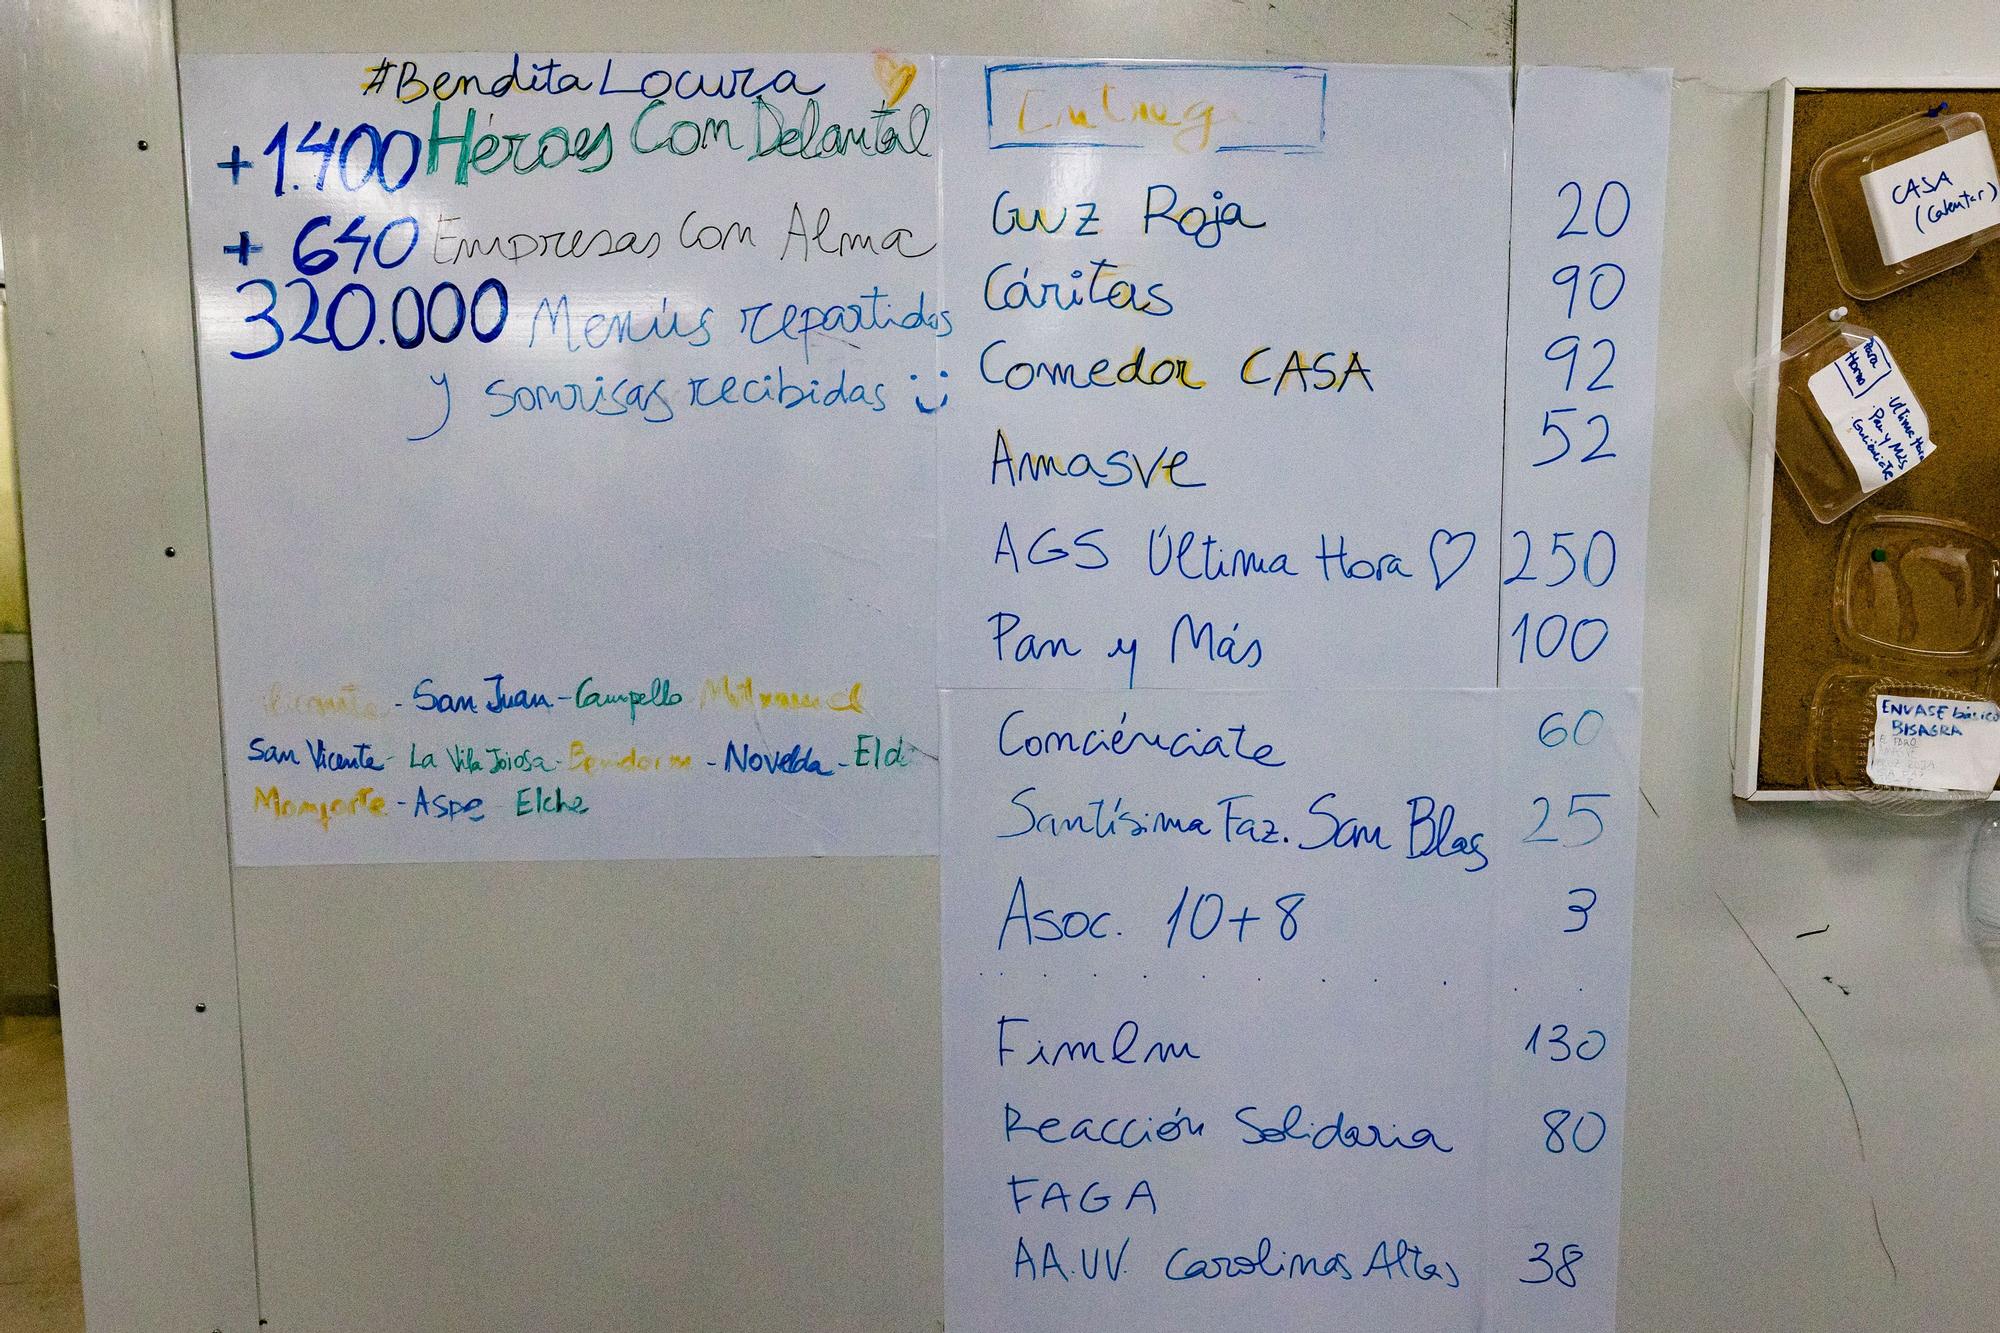 #BenditaLocura
+1.400 Héroes Con Delantal
+ 640 Empresas Con Alma
320.000 Menús repartidos
y sonrisas recibidas :)
- San Juan - Campello Mutxamel
San Vicente - La Vila Joiosa - Benidorm - Novelda - Elda
Monforte - Aspe - Elche
Entrega
Cruz Roja 20
Cáritas 90
Comedor CASA 92
Amasve 52
AGS Última Hora ♡ 250
Pan y Más 100
Conciénciate 60
Santísima Faz. San Blas 25
Asoc. 10+8 3
Fimlm 130
Reacción Solidaria 80
FAGA
AA.VV. Carolinas Altas 38
CASA
(Calentar)
Para
Horno
.Última Hora
.Pan y Más
.Conciénciate
ENVASE básico
BISAGRA